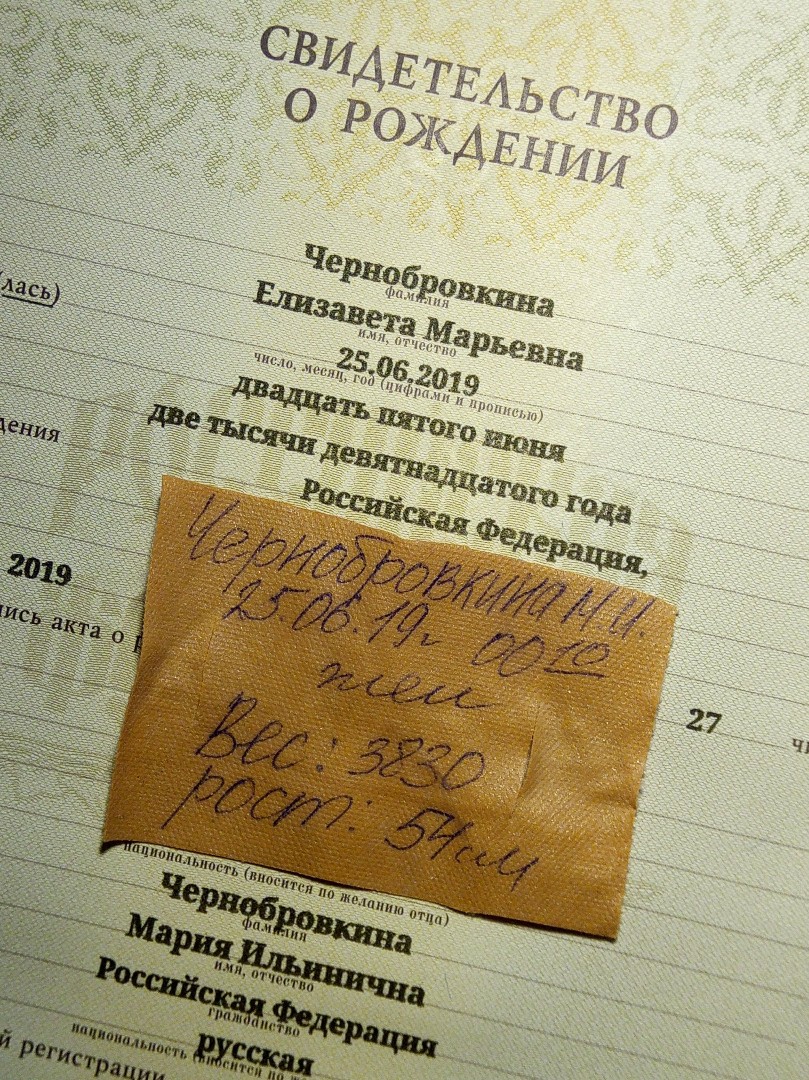 СВИДЕТЕЛЬСТВО
О РОЖДЕНИИ
Чернобровкина
фамилия
(лась)
Елизавета Марьевна
имя, отчество
25.06.2019
число, месяц, год (цифрами и прописью)
двадцать пятого июня
две тысячи девятнадцатого года
Российская Федерация,
Чернобровкина М.И.
25.06.19г 00 10
2019
акта о
жен
27
Вес: 3830
рост: 54см
национальность (вносится по желанию отца)
Чернобровкина
фамилия
Мария Ильинична
имя, отчество
Российская Федерация
гражданство
русская
национальность (вносится по
регистрации